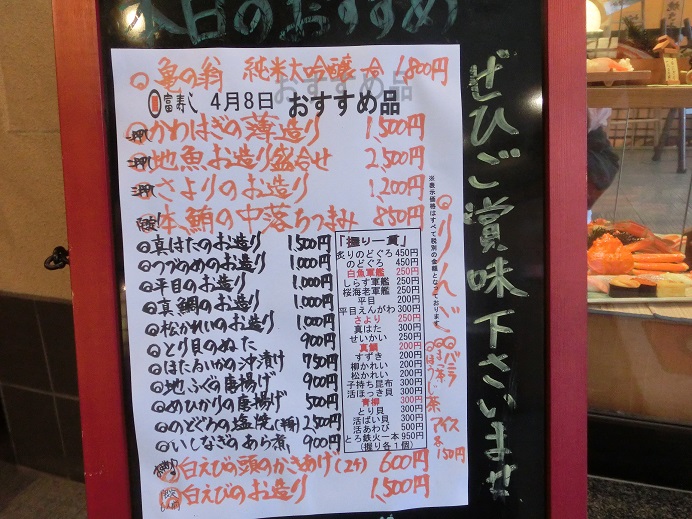 本日のおすすめ
亀の翁 純米大吟醸 一合 1,800円
富寿し 4月8日 おすすめ品
かわはぎの薄造り 1,500円
地魚お造り盛合せ 2,500円
さよりのお造り 1,200円
本鮪の中落ちつまみ 850円
◎真はたのお造り 1,500円
◎つづめのお造り 1,000円
◎平目のお造り 1,000円
◎真鯛のお造り 1,000円
◎松かれいのお造り 1,000円
◎とり貝のぬた 900円
◎ほたるいかの沖漬け 750円
◎地ふぐの唐揚げ 900円
◎めひかりの唐揚げ 500円
◎のどぐろの塩焼(半身) 2,500円
◎いしなぎのあら煮 900円
白えびの頭のかきあげ(2ケ) 600円
白えびのお造り 1,500円
「握り一貫」
炙りのどぐろ 450円
のどぐろ 450円
白魚軍艦 250円
しらす軍艦 250円
桜海老軍艦 250円
平目 200円
平目えんがわ 300円
さより 250円
真はた 300円
せいかい 250円
真鯛 200円
すずき 200円
柳かれい 200円
松かれい 200円
子持ち昆布 300円
活ほっき貝 300円
青柳 300円
とり貝 300円
活ばい貝 300円
活あわび 500円
とろ鉄火一本 950円
(握り各1個)
※表示価格はすべて税別の金額となっております。
りんご
バニラ
ほうじ茶
アイス
各150円
ぜひご賞味下さいませ